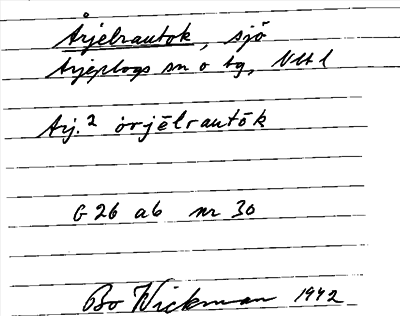 Årjelrautok, sjö
Arjeplogs sn o tg, Vbtl
Arj.² òrjēlrautōk
G 26 ab nr 30
Bo Wickman 1942